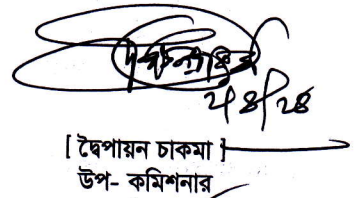 ২/৪/২৪
[ দ্বৈপায়ন চাকমা ]
উপ- কমিশনার